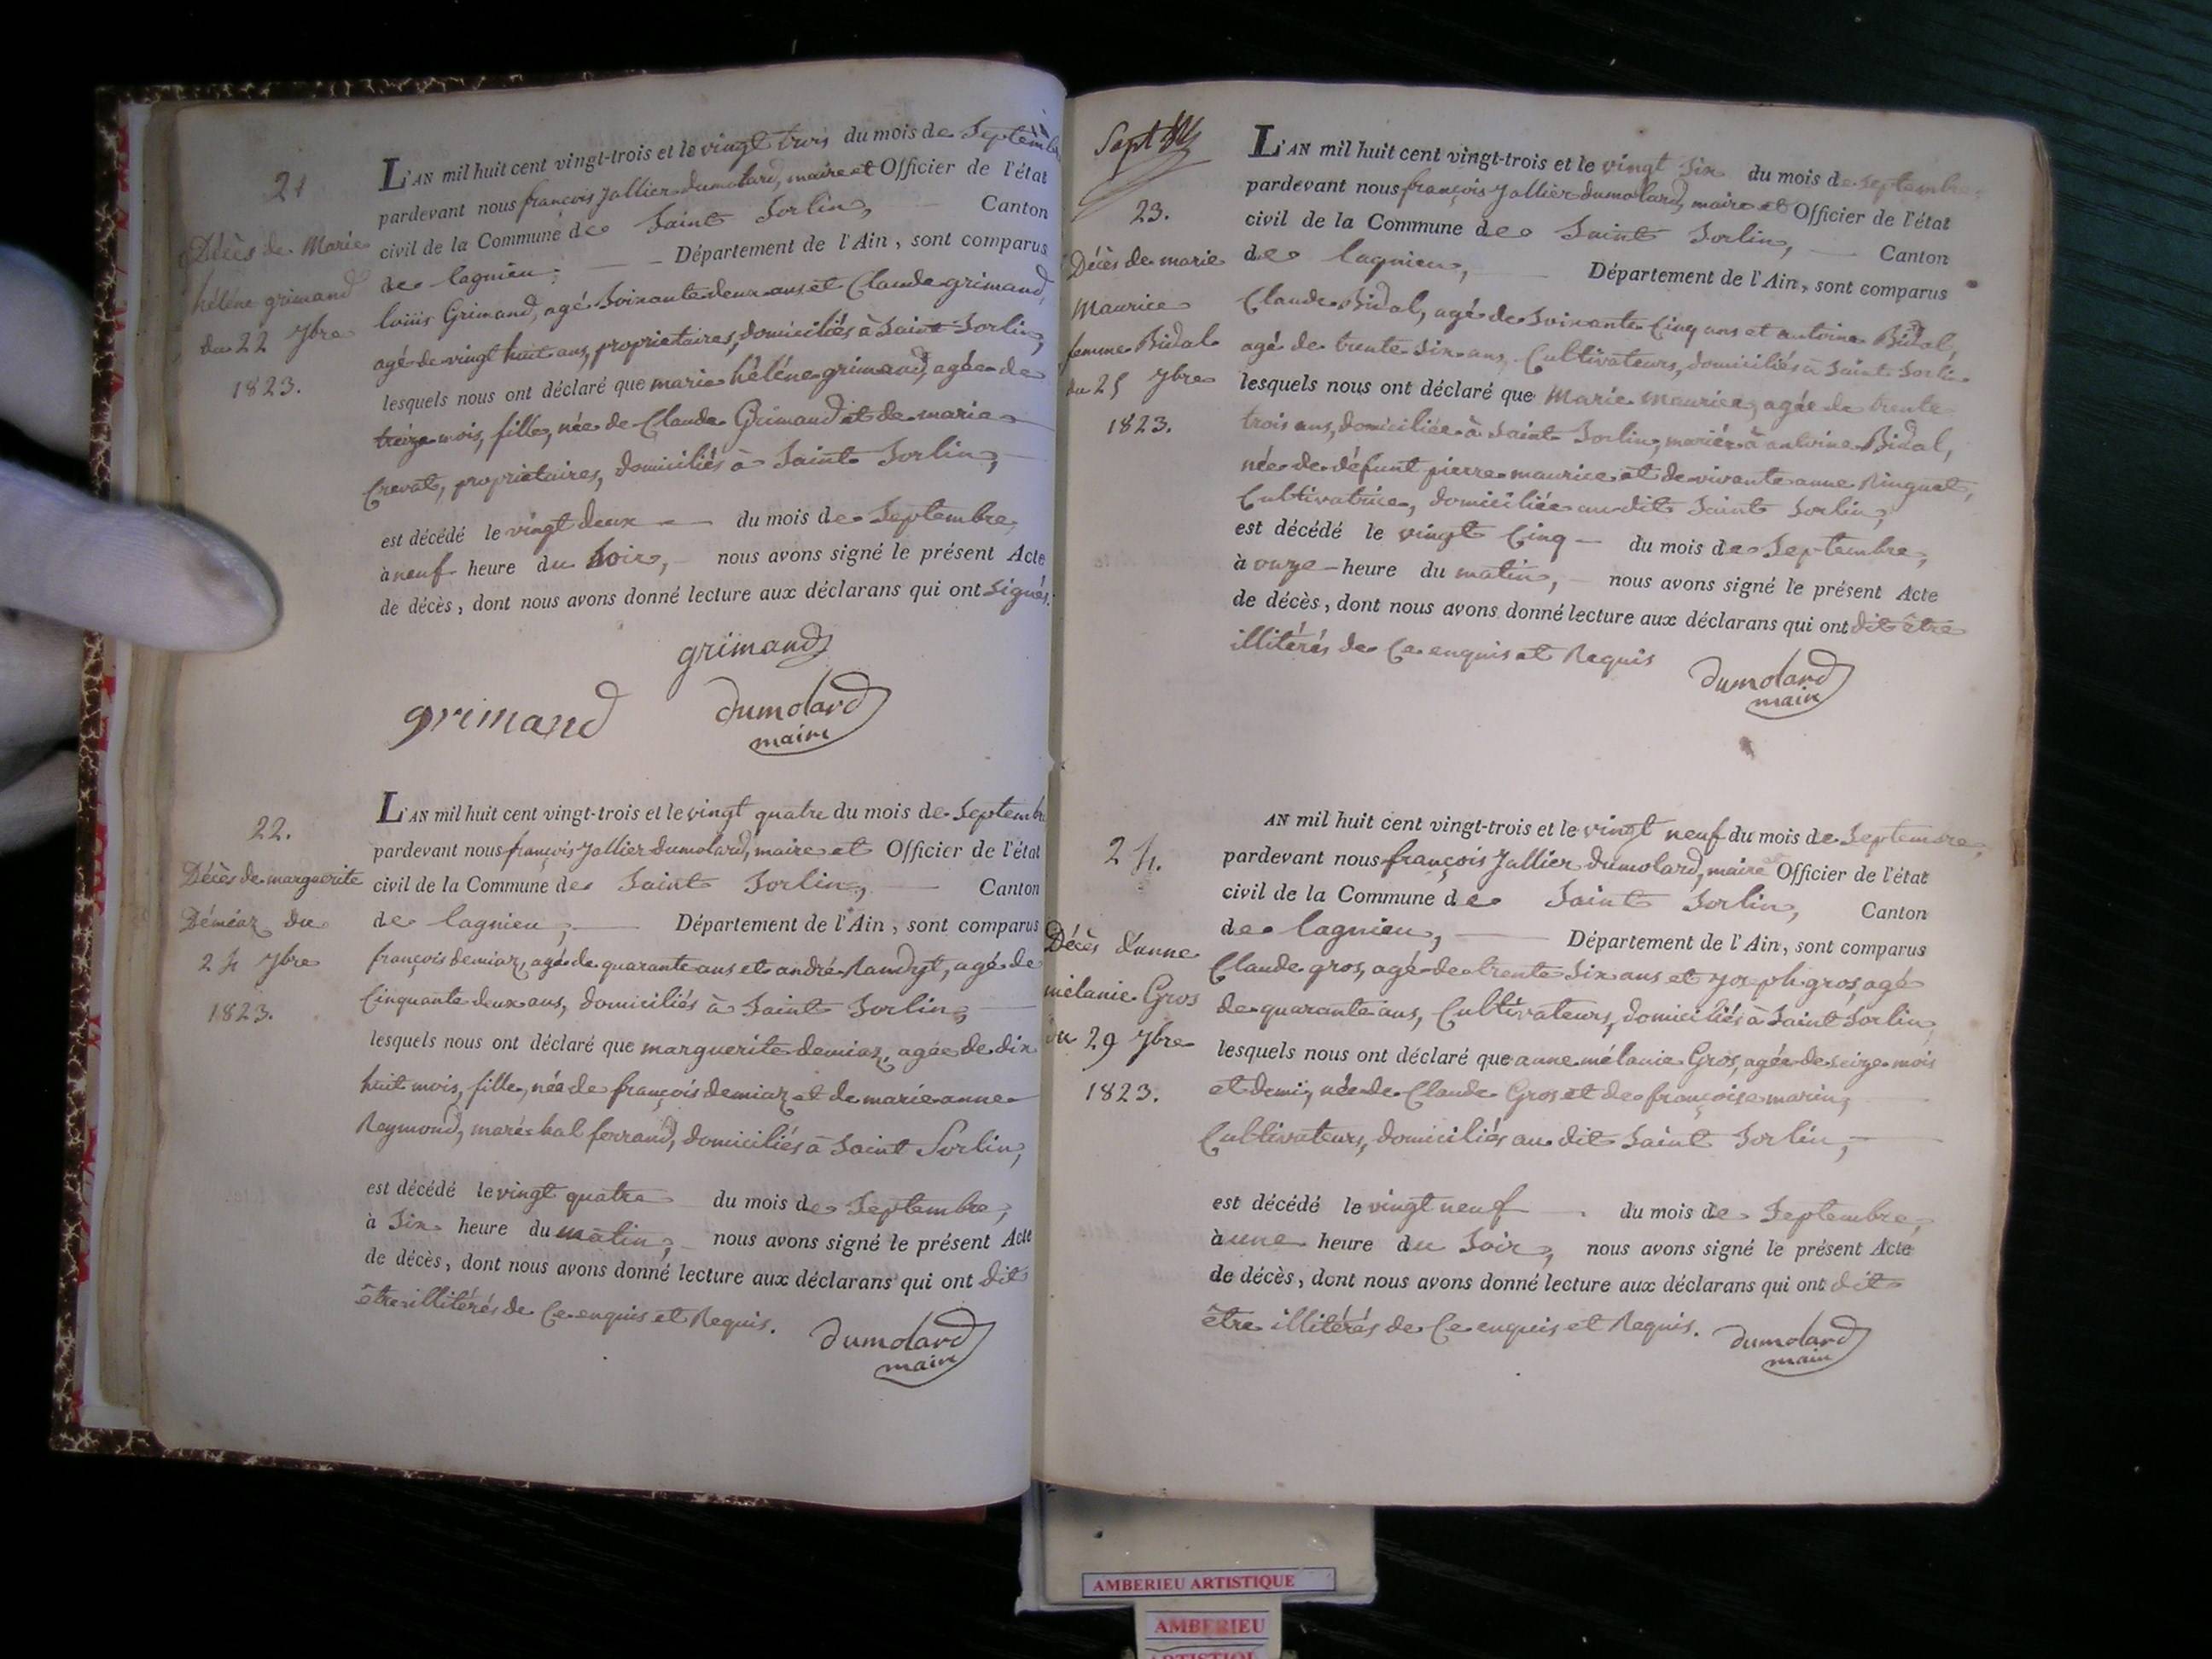 21
Décès de Marie
hélène grimand
du 22 7bre
1823.
L'AN mil huit cent vingt-trois et le vingt trois du mois de Septembre
pardevant nous françois Jallier dumolard, maire et Officier de l'état
civil de la Commune de Saint Sorlin, Canton
de lagnieu; Département de l'Ain, sont comparus
louis Grimand, agé Soixante deux ans et Claude grimand,
agé de vingt huit ans, proprietaires, domiciliés à Saint Sorlin,
lesquels nous ont déclaré que marie hélène grimand, agée de
treize mois, fille, née de Claude Grimand et de marie
Crevat, propriétaires, domiciliés à Saint Sorlin,
est décédé le vingt deux du mois de Septembre,
à neuf heure du Soir, nous avons signé le présent Acte
de décès, dont nous avons donné lecture aux déclarans qui ont Signés.
grimand
grimand dumolard
maire
22.
Décès de marguerite
Démiaz du
24 7bre
1823.
L'AN mil huit cent vingt-trois et le vingt quatre du mois de Septembre
pardevant nous françois Jallier dumolard, maire et Officier de l'état
civil de la Commune de Saint Sorlin, Canton
de lagnieu, Département de l'Ain, sont comparus
françois demiaz, agé de quarante ans et andré, agé de
Cinquante deux ans, domiciliés à Saint Sorlin,
lesquels nous ont déclaré que marguerite demiaz, agée de dix
huit mois, fille, née de françois demiaz et de marie anne
Reymond, maréchal ferrand, domiciliés à Saint Sorlin,
est décédé le vingt quatre du mois de Septembre,
à Six heure du matin, nous avons signé le présent Acte
de décès, dont nous avons donné lecture aux déclarans qui ont dit
être illitérés de Ce enquis et Requis.
dumolard
maire
23.
Décès de marie
Maurice
femme Bidal
du 25 7bre
1823.
L'AN mil huit cent vingt-trois et le vingt Six du mois de Septembre,
pardevant nous françois Jallier dumolard, maire et Officier de l'état
civil de la Commune de Saint Sorlin, Canton
de lagnieu, Département de l'Ain, sont comparus
Claude Bidal, agé de Soixante Cinq ans et antoine Bidal,
agé de trente Six ans, Cultivateurs, domiciliés à Saint Sorlin
lesquels nous ont déclaré que Marie Maurice, agée de trente
trois ans, domiciliée à Saint Sorlin, mariée à antoine Bidal,
née de défunt pierre maurice et de vivante anne Ringuet,
Cultivatrice, domiciliée au dit Saint Sorlin,
est décédé le vingt Cinq du mois de Septembre,
à onze heure du matin, nous avons signé le présent Acte
de décès, dont nous avons donné lecture aux déclarans qui ont dit être
illitérés de Ce enquis et Requis
dumolard
maire
24.
Décès d'anne
mélanie Gros
du 29 7bre
1823.
AN mil huit cent vingt-trois et le vingt neuf du mois de Septembre,
pardevant nous françois Jallier dumolard, maire et Officier de l'état
civil de la Commune de Saint Sorlin, Canton
de lagnieu, Département de l'Ain, sont comparus
Claude gros, agé de trente Six ans et joseph gros, agé
de quarante ans, Cultivateurs, domiciliés à Saint Sorlin,
lesquels nous ont déclaré que anne mélanie Gros, agée de seize mois
et demi, née de Claude Gros et de françoise marin,
Cultivateurs, domiciliés au dit Saint Sorlin,
est décédé le vingt neuf du mois de Septembre,
à une heure du Soir, nous avons signé le présent Acte
de décès, dont nous avons donné lecture aux déclarans qui ont dit
être illitérés de Ce enquis et Requis.
dumolard
maire
AMBERIEU ARTISTIQUE
AMBERIEU
ARTISTIQUE